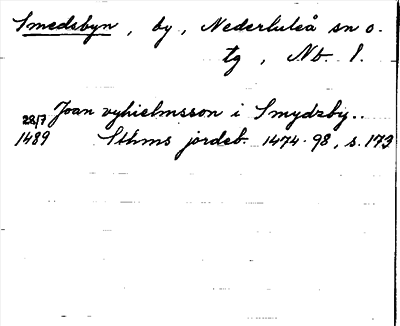 Smedsbyn, by, Nederluleå sn o.
tg, Nb. l.
28/7 Joan vyhielmsson i Smydzby..
1489 Sthms jordeb. 1474-98, s. 173